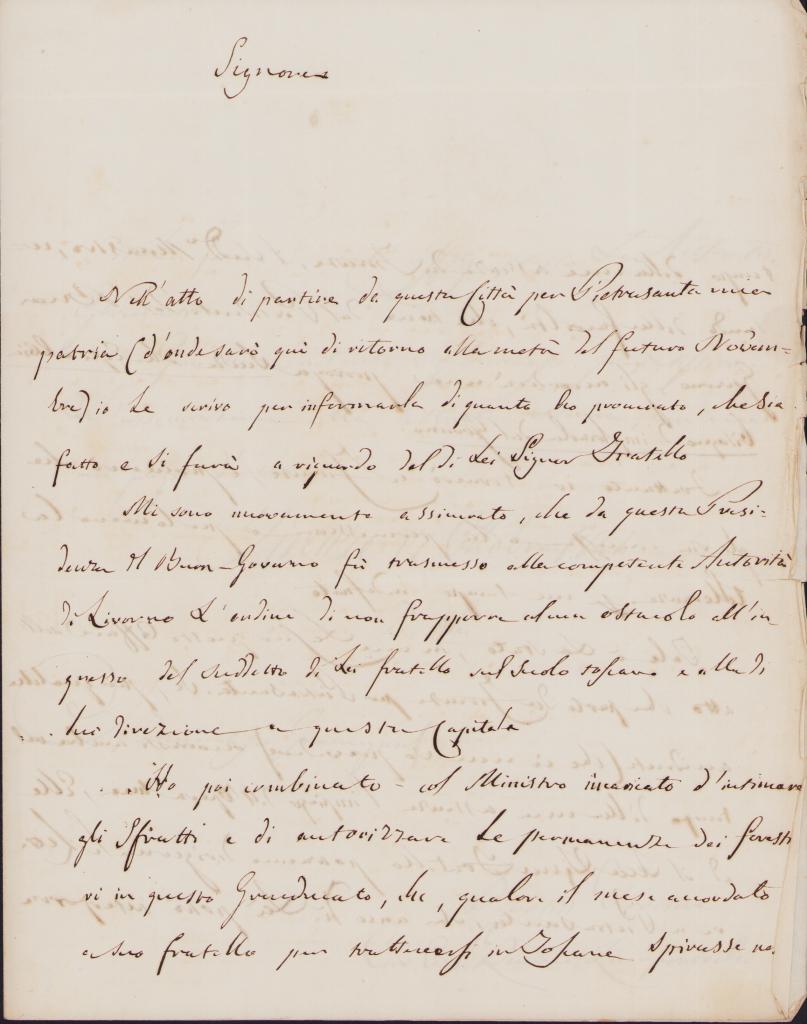 Signore
Nell' atto di partire da questa Città per Pietrasanta mia
patria (d'onde sarò quì di ritorno alla metà del futuro Novem-
bre) io Le scrivo per informarla di quanto ho procurato, che sia
fatto e si farà a riguardo del di Lei Signor Fratello
Mi sono nuovamente assicurato, che da questa Presi-
denza del Buon-Governo fù trasmesso alla competente Autorità
di Livorno L'ordine di non frapporre alcun ostacolo all'in-
gresso del suddetto di Lei fratello sul suolo toscano e alla di
lui direzione a questa Capitale
Ho poi combinato col Ministro incaricato d'intimare
gli Sfratti e di autorizzare Le permanenze dei foresti
ri in questo Granducato, che, qualora il mese accordato
a suo fratello per trattenersi in Toscana spirasse